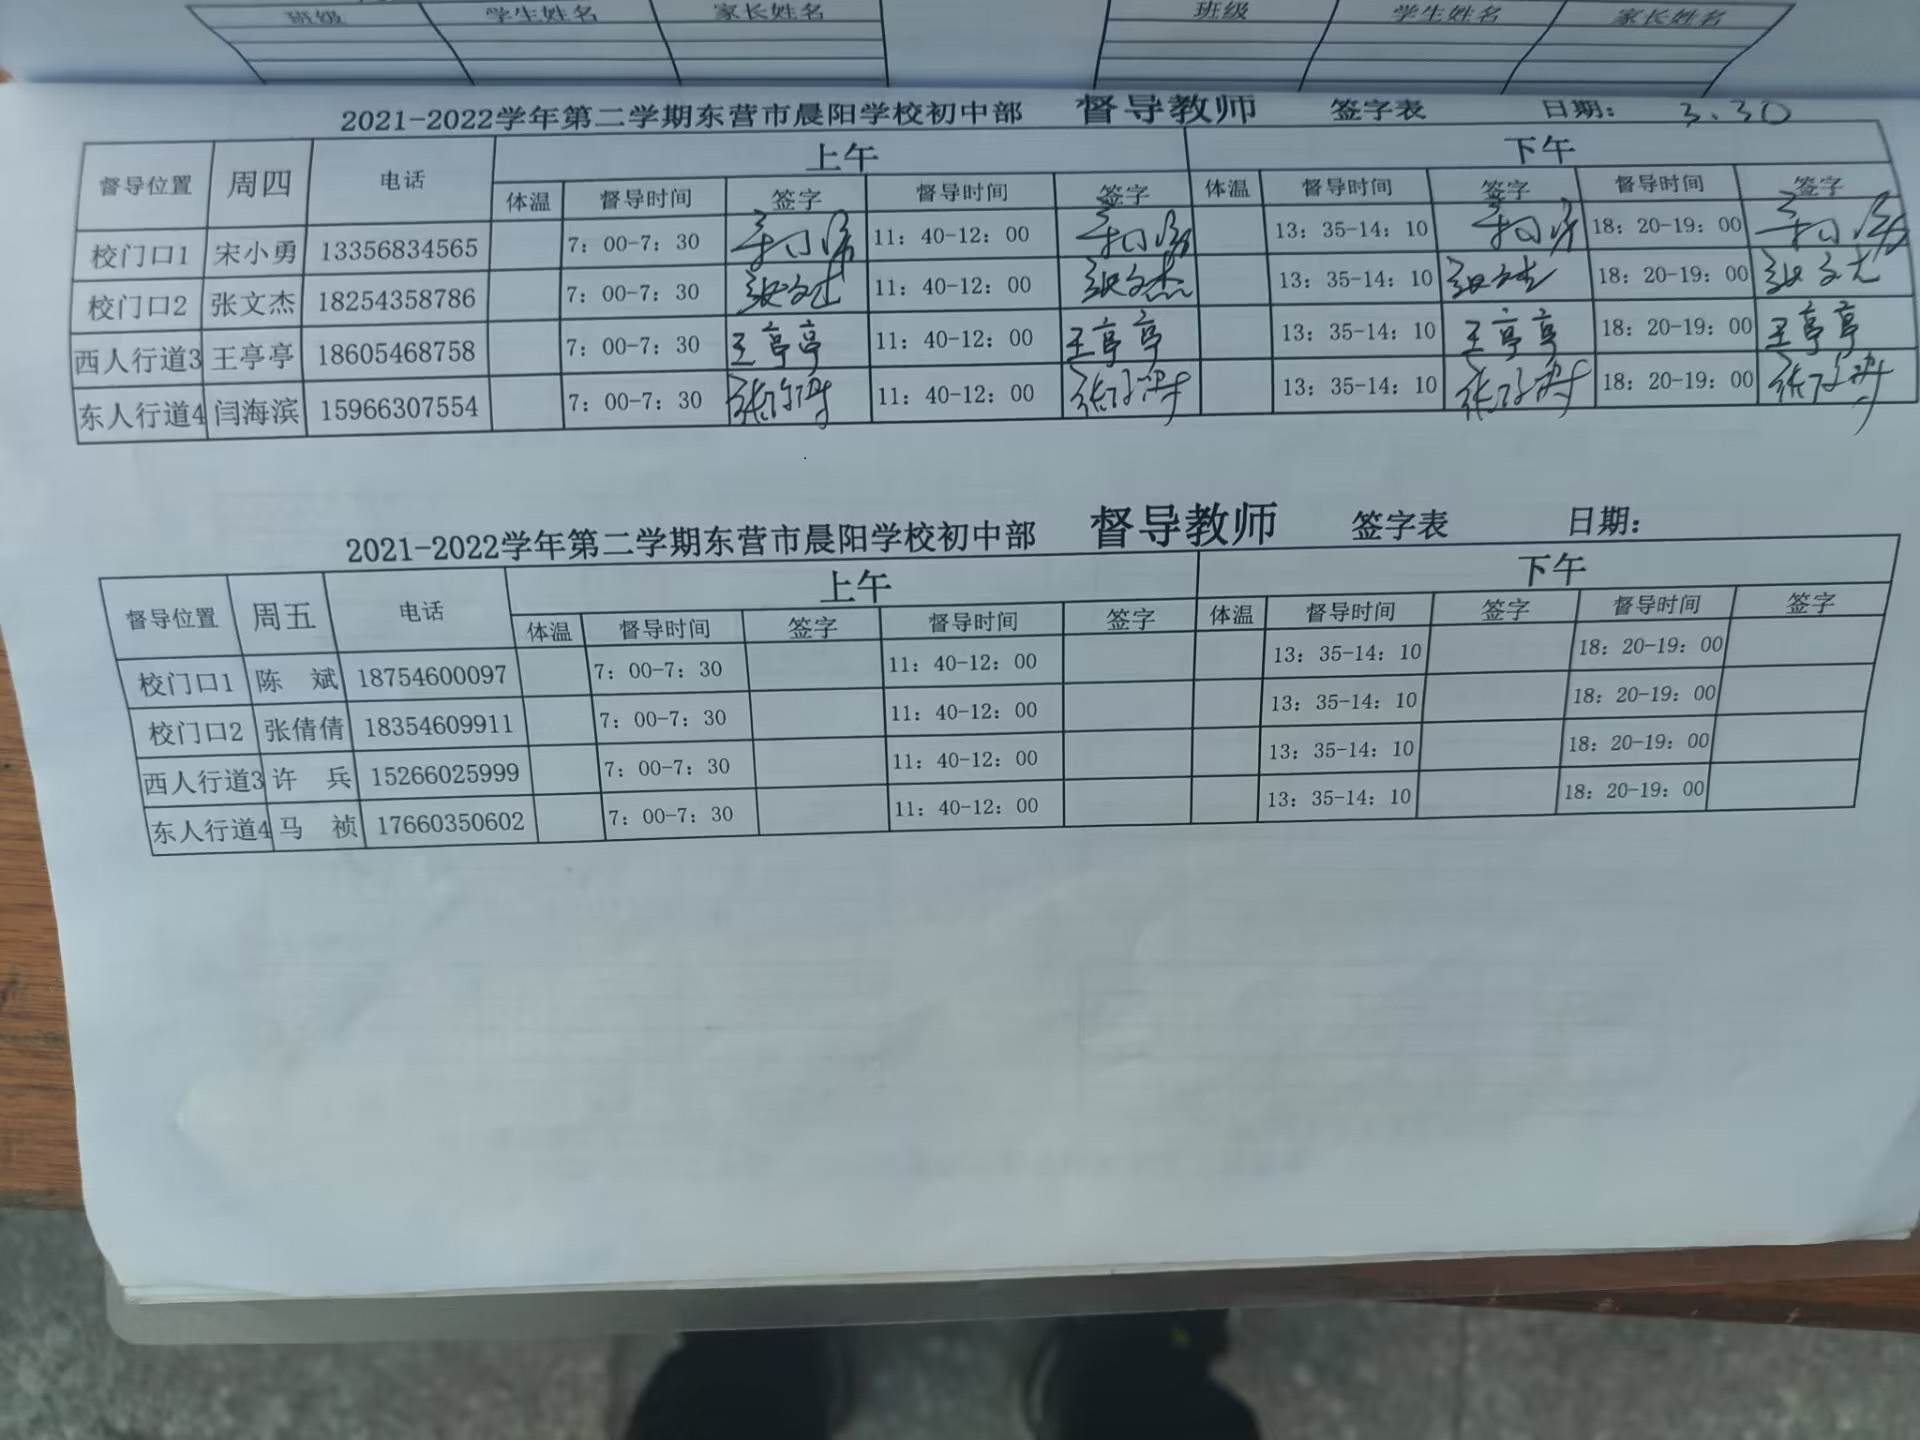 班级 学生姓名 家长姓名 班级 学生姓名 家长姓名
2021-2022学年第二学期东营市晨阳学校初中部 督导教师 签字表 日期: 3.30
督导位置 周四 电话 上午 下午
体温 督导时间 签字 督导时间 签字 体温 督导时间 签字 督导时间 签字
校门口1 宋小勇 13356834565 7: 00-7: 30 11: 40-12: 00 13: 35-14: 10 18: 20-19: 00
校门口2 张文杰 18254358786 7: 00-7: 30 张文杰 11: 40-12: 00 张文杰 13: 35-14: 10 张文杰 18: 20-19: 00 张文杰
西人行道3 王亭亭 18605468758 7: 00-7: 30 王亭亭 11: 40-12: 00 王亭亭 13: 35-14: 10 王亭亭 18: 20-19: 00 王亭亭
东人行道4 闫海滨 15966307554 7: 00-7: 30 11: 40-12: 00 13: 35-14: 10 18: 20-19: 00
2021-2022学年第二学期东营市晨阳学校初中部 督导教师 签字表 日期:
督导位置 周五 电话 上午 下午
体温 督导时间 签字 督导时间 签字 体温 督导时间 签字 督导时间 签字
校门口1 陈 斌 18754600097 7: 00-7: 30 11: 40-12: 00 13: 35-14: 10 18: 20-19: 00
校门口2 张倩倩 18354609911 7: 00-7: 30 11: 40-12: 00 13: 35-14: 10 18: 20-19: 00
西人行道3 许 兵 15266025999 7: 00-7: 30 11: 40-12: 00 13: 35-14: 10 18: 20-19: 00
东人行道4 马 祯 17660350602 7: 00-7: 30 11: 40-12: 00 13: 35-14: 10 18: 20-19: 00